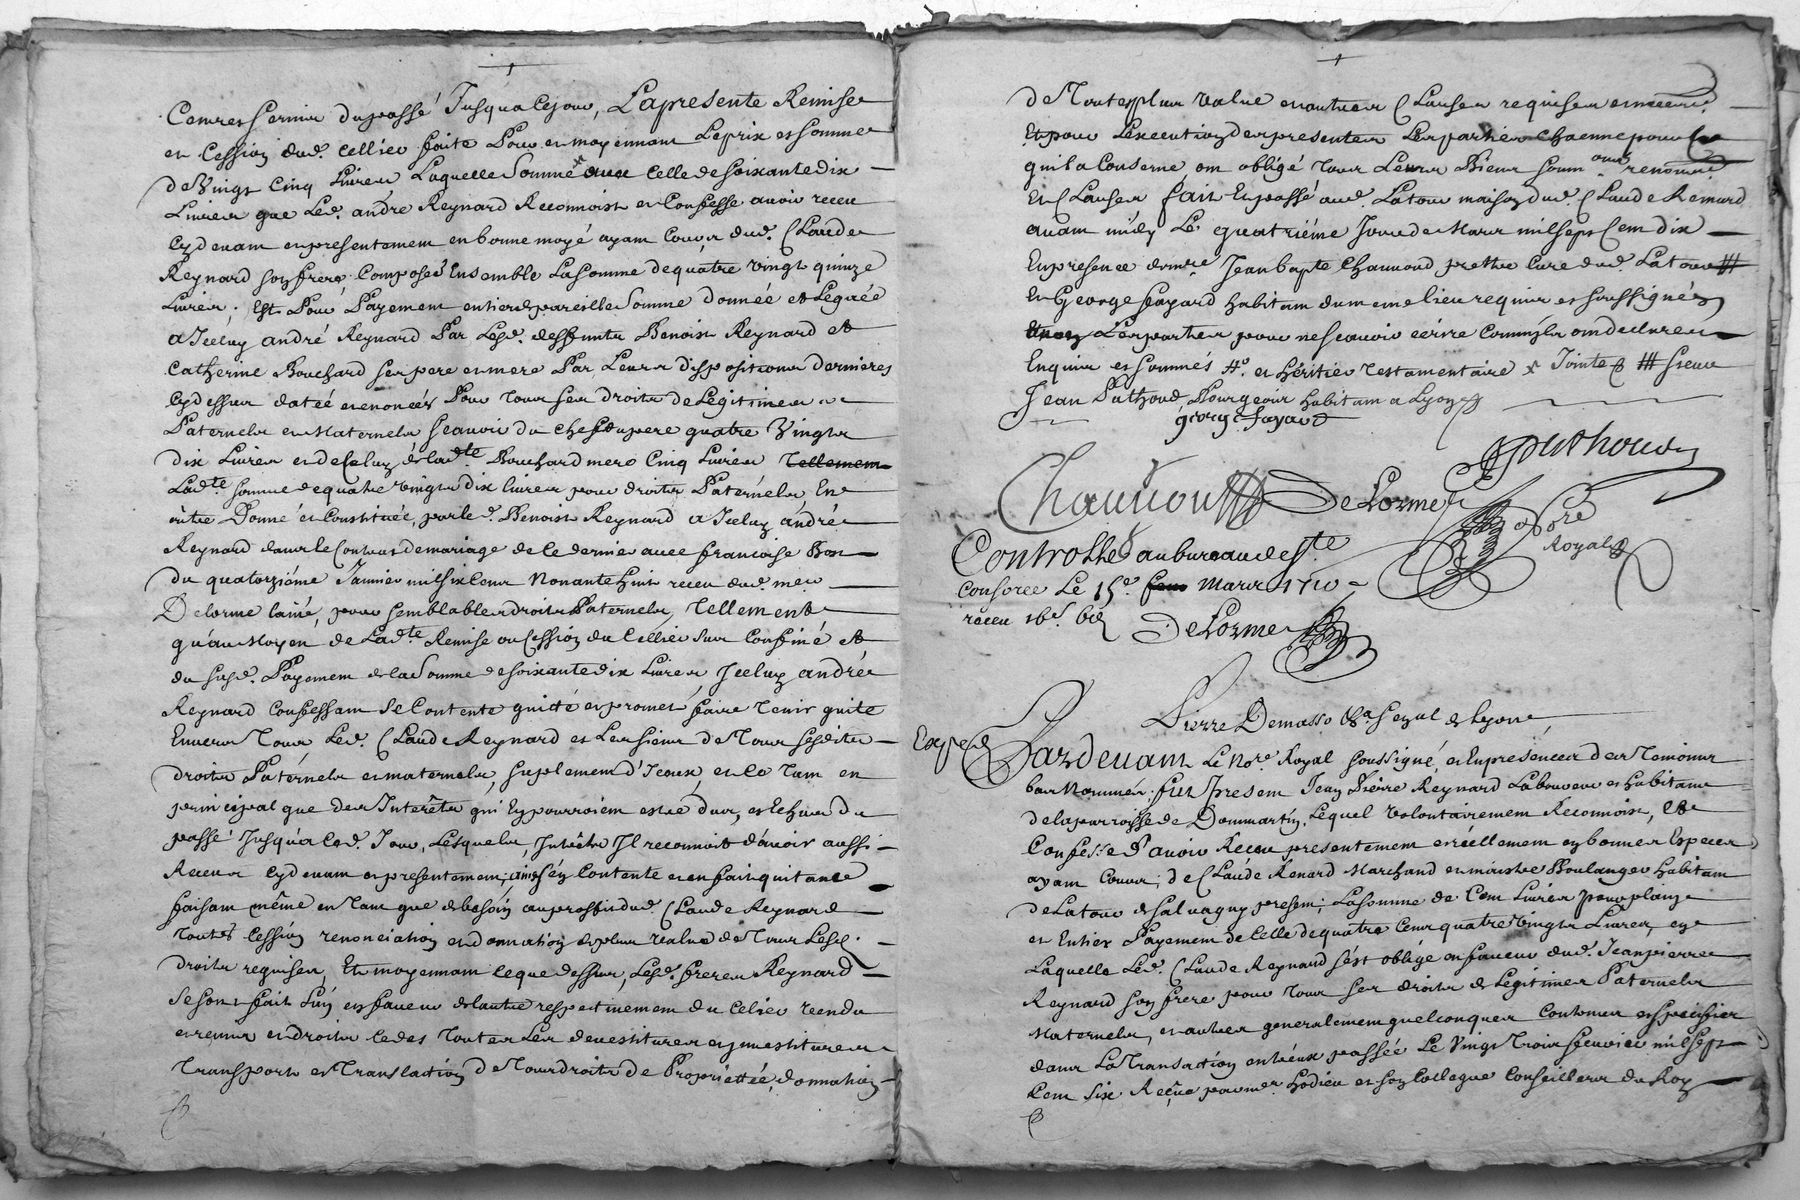 du passé Jusqua ce jour, La presente Remise
et Cession dud. cellier faite Pour et moyennant Le prix et somme
de Vingt Cinq Livres Laquelle Somme avec Celle de soixante dix
Livres que Led. andré Reynard Reconnoist et Confesse avoir receu
cy devant et presentement en bonne moyé ayant Cours dud. Claude
Reynard son frere Composée Ensemble La somme de quatre vingt quinze
Livres, Est Pour Payement entier de pareille Somme donnée et Leguée
a Iceluy andré Reynard Par Lesd. deffunts Benoist Reynard et
Catherine Bouchard ses pere et mere Par Leurs dispositions dernieres
cy dessus datée et enoncées Pour tous ses droits de Legitimes
Paternels et Maternels scavoir du Chef du pere quatre Vingts
dix Livres et de Celuy de lad.te Bouchard mere Cinq Livres Tellement
Lad.te somme de quatre vingts dix livres pour droits Paternels En
outre Donné et Constitué, par led. Benoist Reynard a Iceluy andré
Reynard dans le Contrat de mariage de ce dernier avec francoise Bon
du quatorziéme Janvier mil six cent Nonante huit receu dud. me
Delorme lainé, pour semblables droits Paternels, Tellement
qu'au Moyen de Lad.te Remise ou Cession du Cellier sus Confiné et
du susd. Payement de la Somme de soixante dix Livres Iceluy andré
Reynard Confessant se Contente quitte et promet faire tenir quite
Envers Tous Led. Claude Reynard et Les siens de Tous sesdits
droits Paternels et maternels, suplement d'Iceux et ce Tant en
principal que des Interêts qui luy pourroient estre dus, et Echus du
passé Jusqua ced. Jour, Lesquels Interêts Il reconnoit d'avoir aussi
Receu cy devant et presentement; sen Contente et en fait quitance
faisant même en Tant que de besoin au proffit dud. Claude Reynard
Toutes Cession renonciation et donnation de plus value de Tous Lesd.
droits requises, Et moyennant ce que dessus, Lesd. freres Reynard
se sont fait l'un en faveur de l'autre respectivement du Celier vendu
et remis et droits cedes Toutes Les devestitures et investitures
Transports et Translation de Tous droits de Propriettée, donnation
de Toute plus value et autres Clauses requises
Et pour L'execution des presentes Les parties Chacune pour ce
qui la Conserne, ont obligé tous Leurs Biens soum.ons renon
Et Clauses fait Et passé aud. Latour maison dud. Claude Renard
avant midy Le quatriéme Jour de Mars mil sept Cent dix
En presence de mre Jean bapte Chauvond prettre Curé dud. Latour #
Et George fayard habitant du meme lieu requis et soussignés
Les parties pour ne scavoir ecrire Comm'ils ont declarer
Enquis et sommés #. et héritier Testamentaire x Jointe # sieur
Jean Puthoud Bourgeois habitant a Lyon
george fayard
Puthoud
Chauvon
DeLorme
nore
Royal
Controllé au bureau de Ste
Consorce Le 15e Mars 1710
receu
DeLorme
Pierre Demasso
Exped
Pardevant Le Nore. Royal soussigné, et En presence des Temoins
bas Nommés: fut Present Jean Pierre Reynard Laboureur et habitant
de la parroisse de Dommartin, Lequel volontairement Reconnoist, Et
Confesse d'avoir Receu presentement et réellement en bonnes Especes
ayant Cours; de Claude Renard Marchand et maistre Boulanger habitant
de Latour de salvagny present; La somme de Cent Livres pour plein
et Entier Payement de Celle de quatre Cent quatre vingts Livres, en
Laquelle Led. Claude Reynard s'est obligé en faveur dud. Jean pierre
Reynard son frere pour tous ses droits de Légitimes Paternels
Maternels, et autres generalement quelconques Contenus et specifier
dans La Transaction entr'eux passée Le Vingt Trois fevrier mil sept
Cent six Reçue par mes hodieu et son Collegue Conseillers du Roy